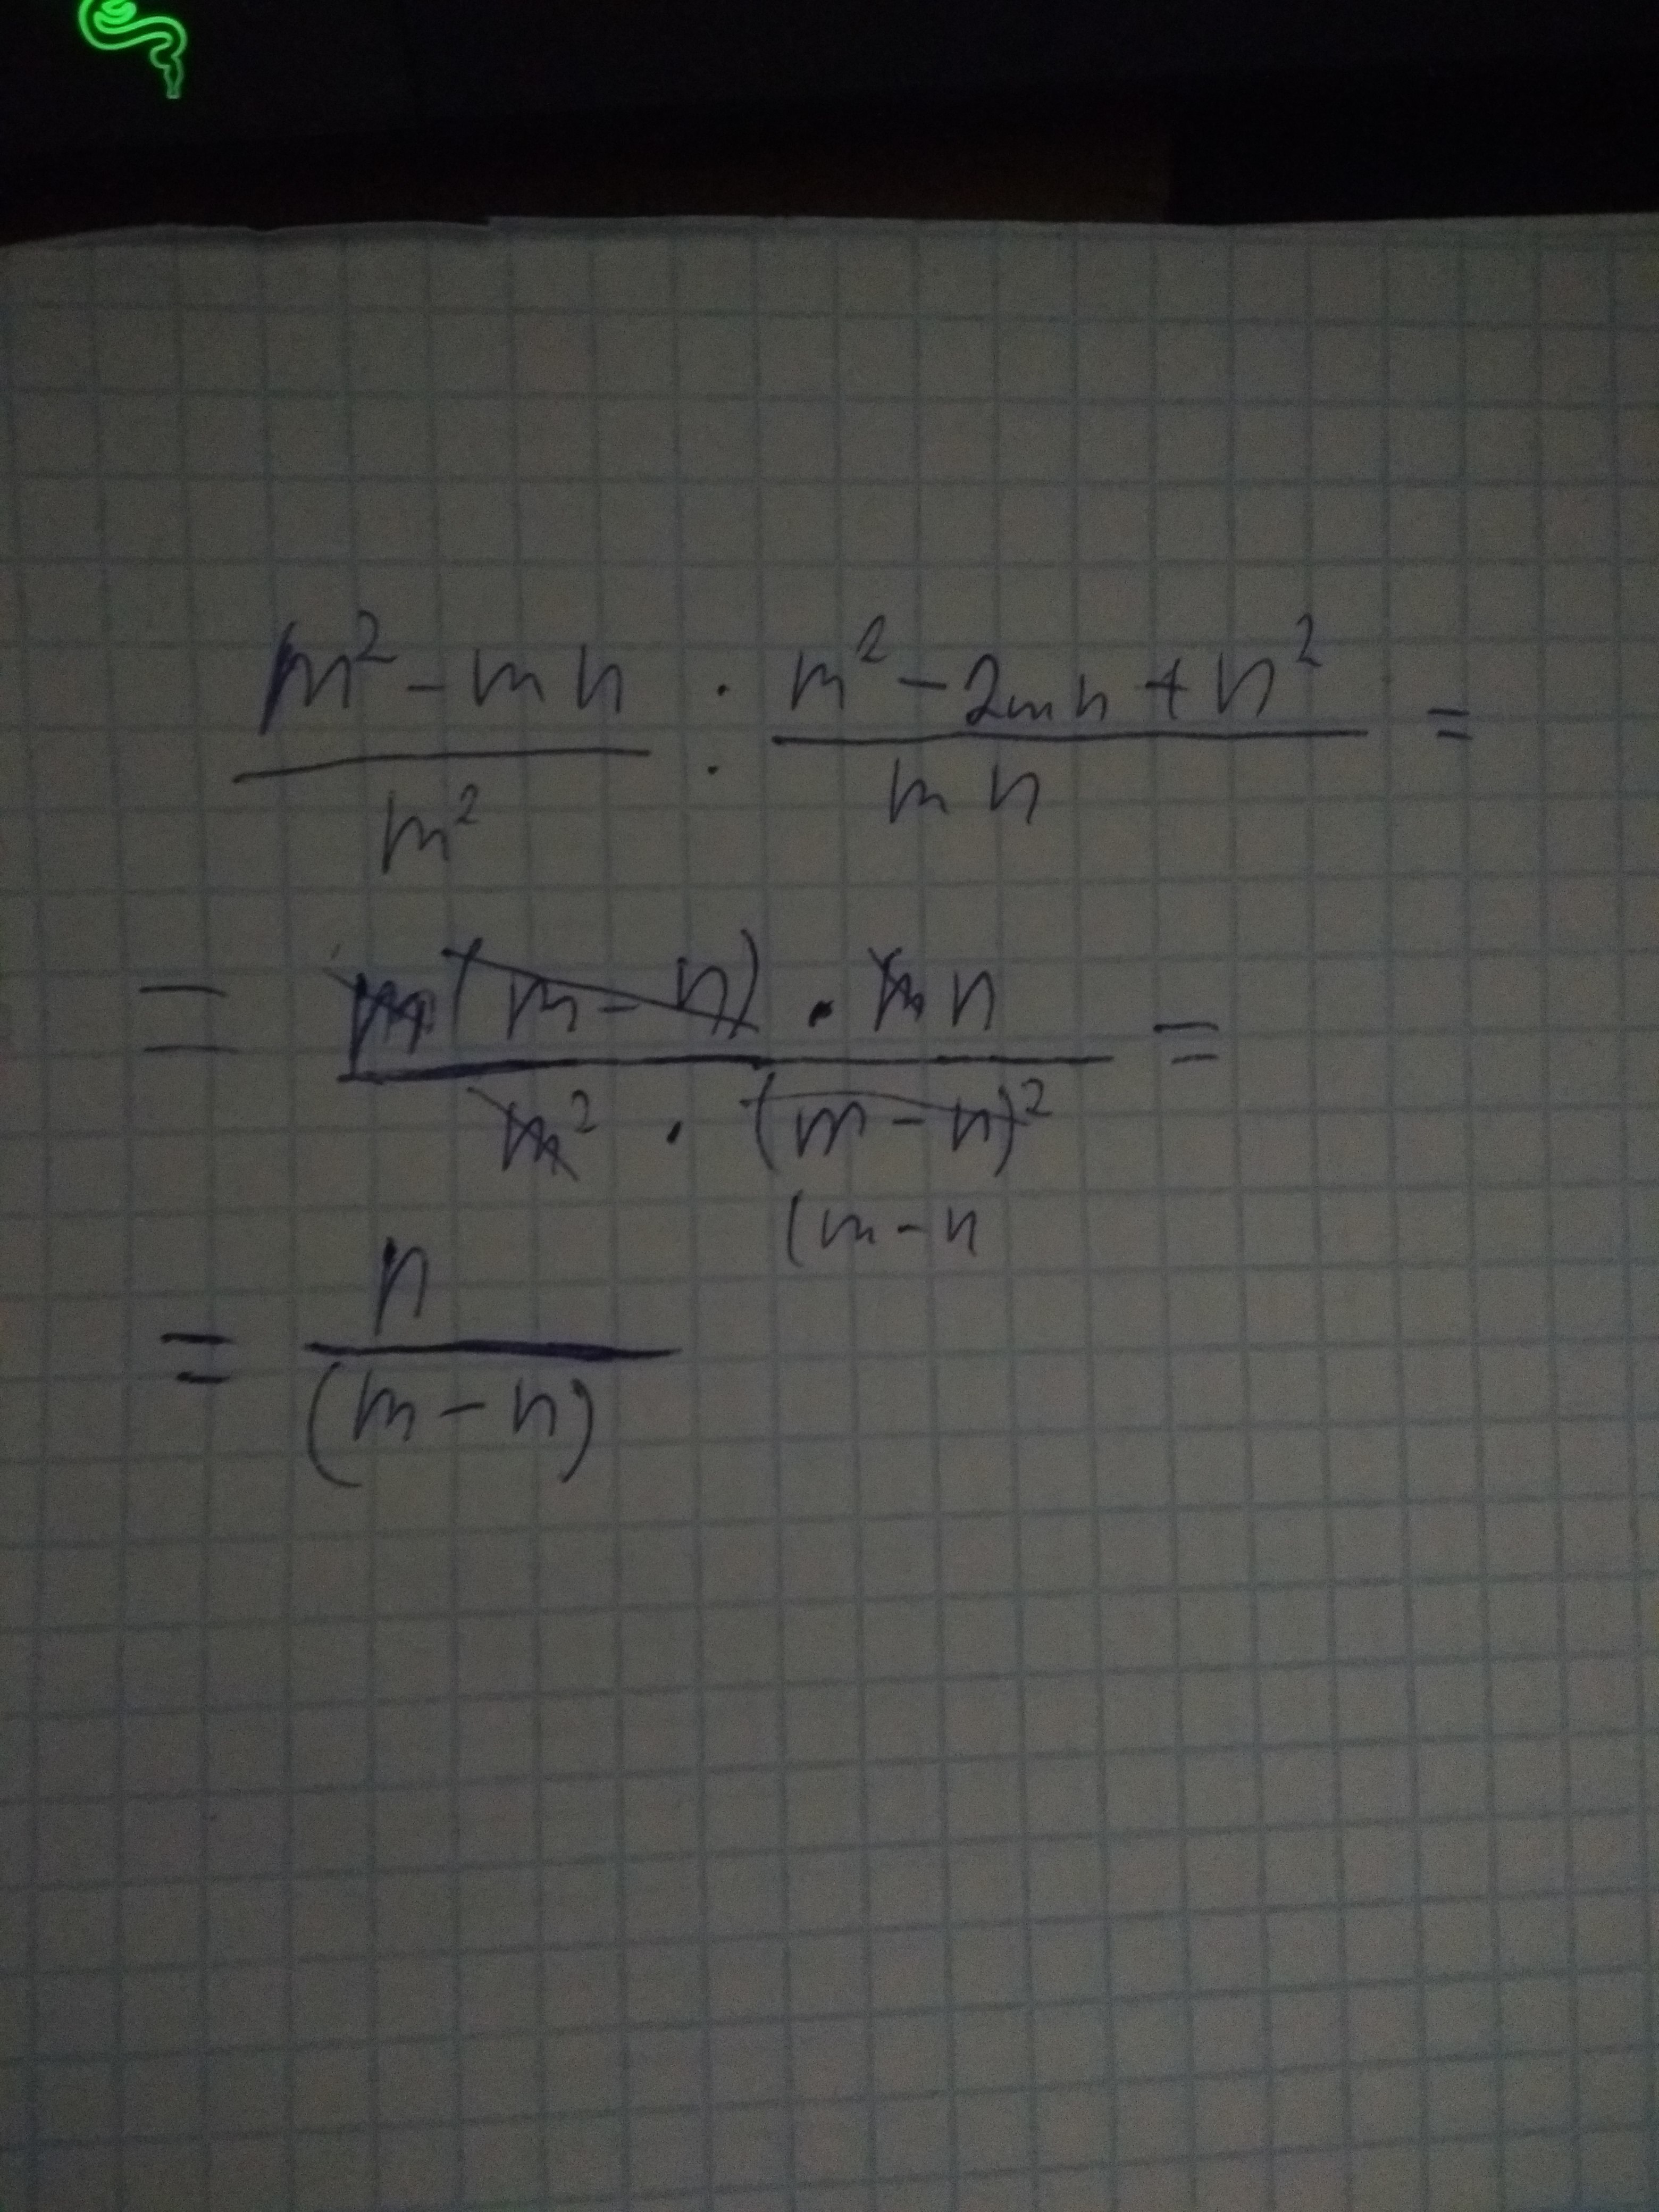 m² - mn / m² : m² - 2mn + n² / mn =
= m(m - n) · mn / m² · (m - n)² =
(m - n
= n / (m - n)